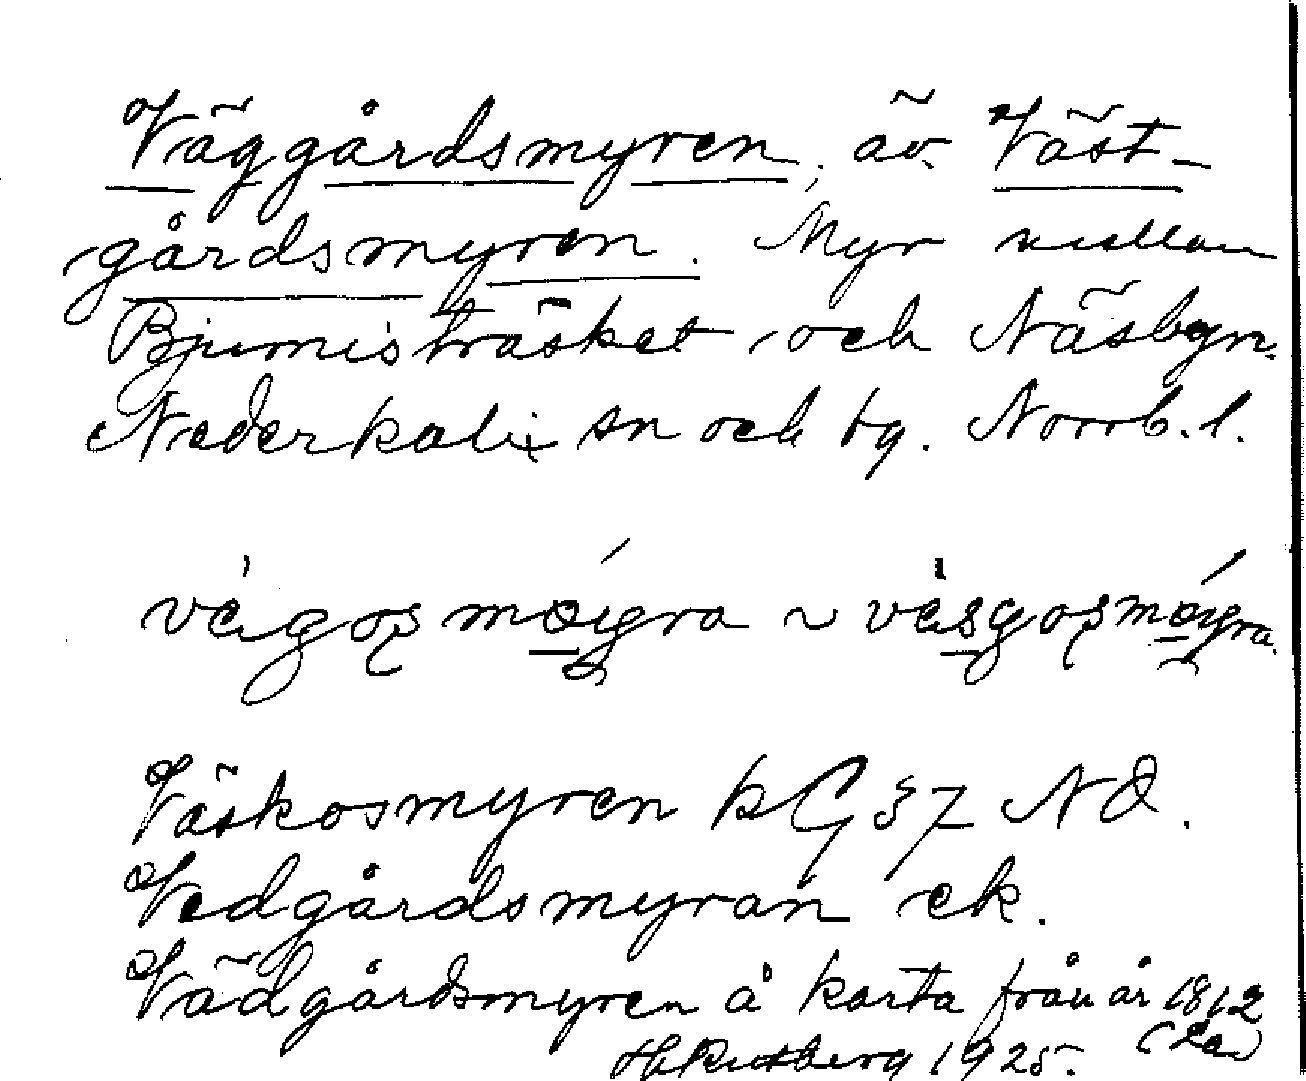 Väggårdsmyren, äv. Väst-
gårdsmyren. Myr mellan
Bjumisträsket och Näsbyn.
Nederkalix sn och tg. Norrb. l.
Väskosmyren kG 37 NO.
Vedgårdsmyran ek.
Vädgårdsmyren å karta från år 1812
H. Rutberg 1925.